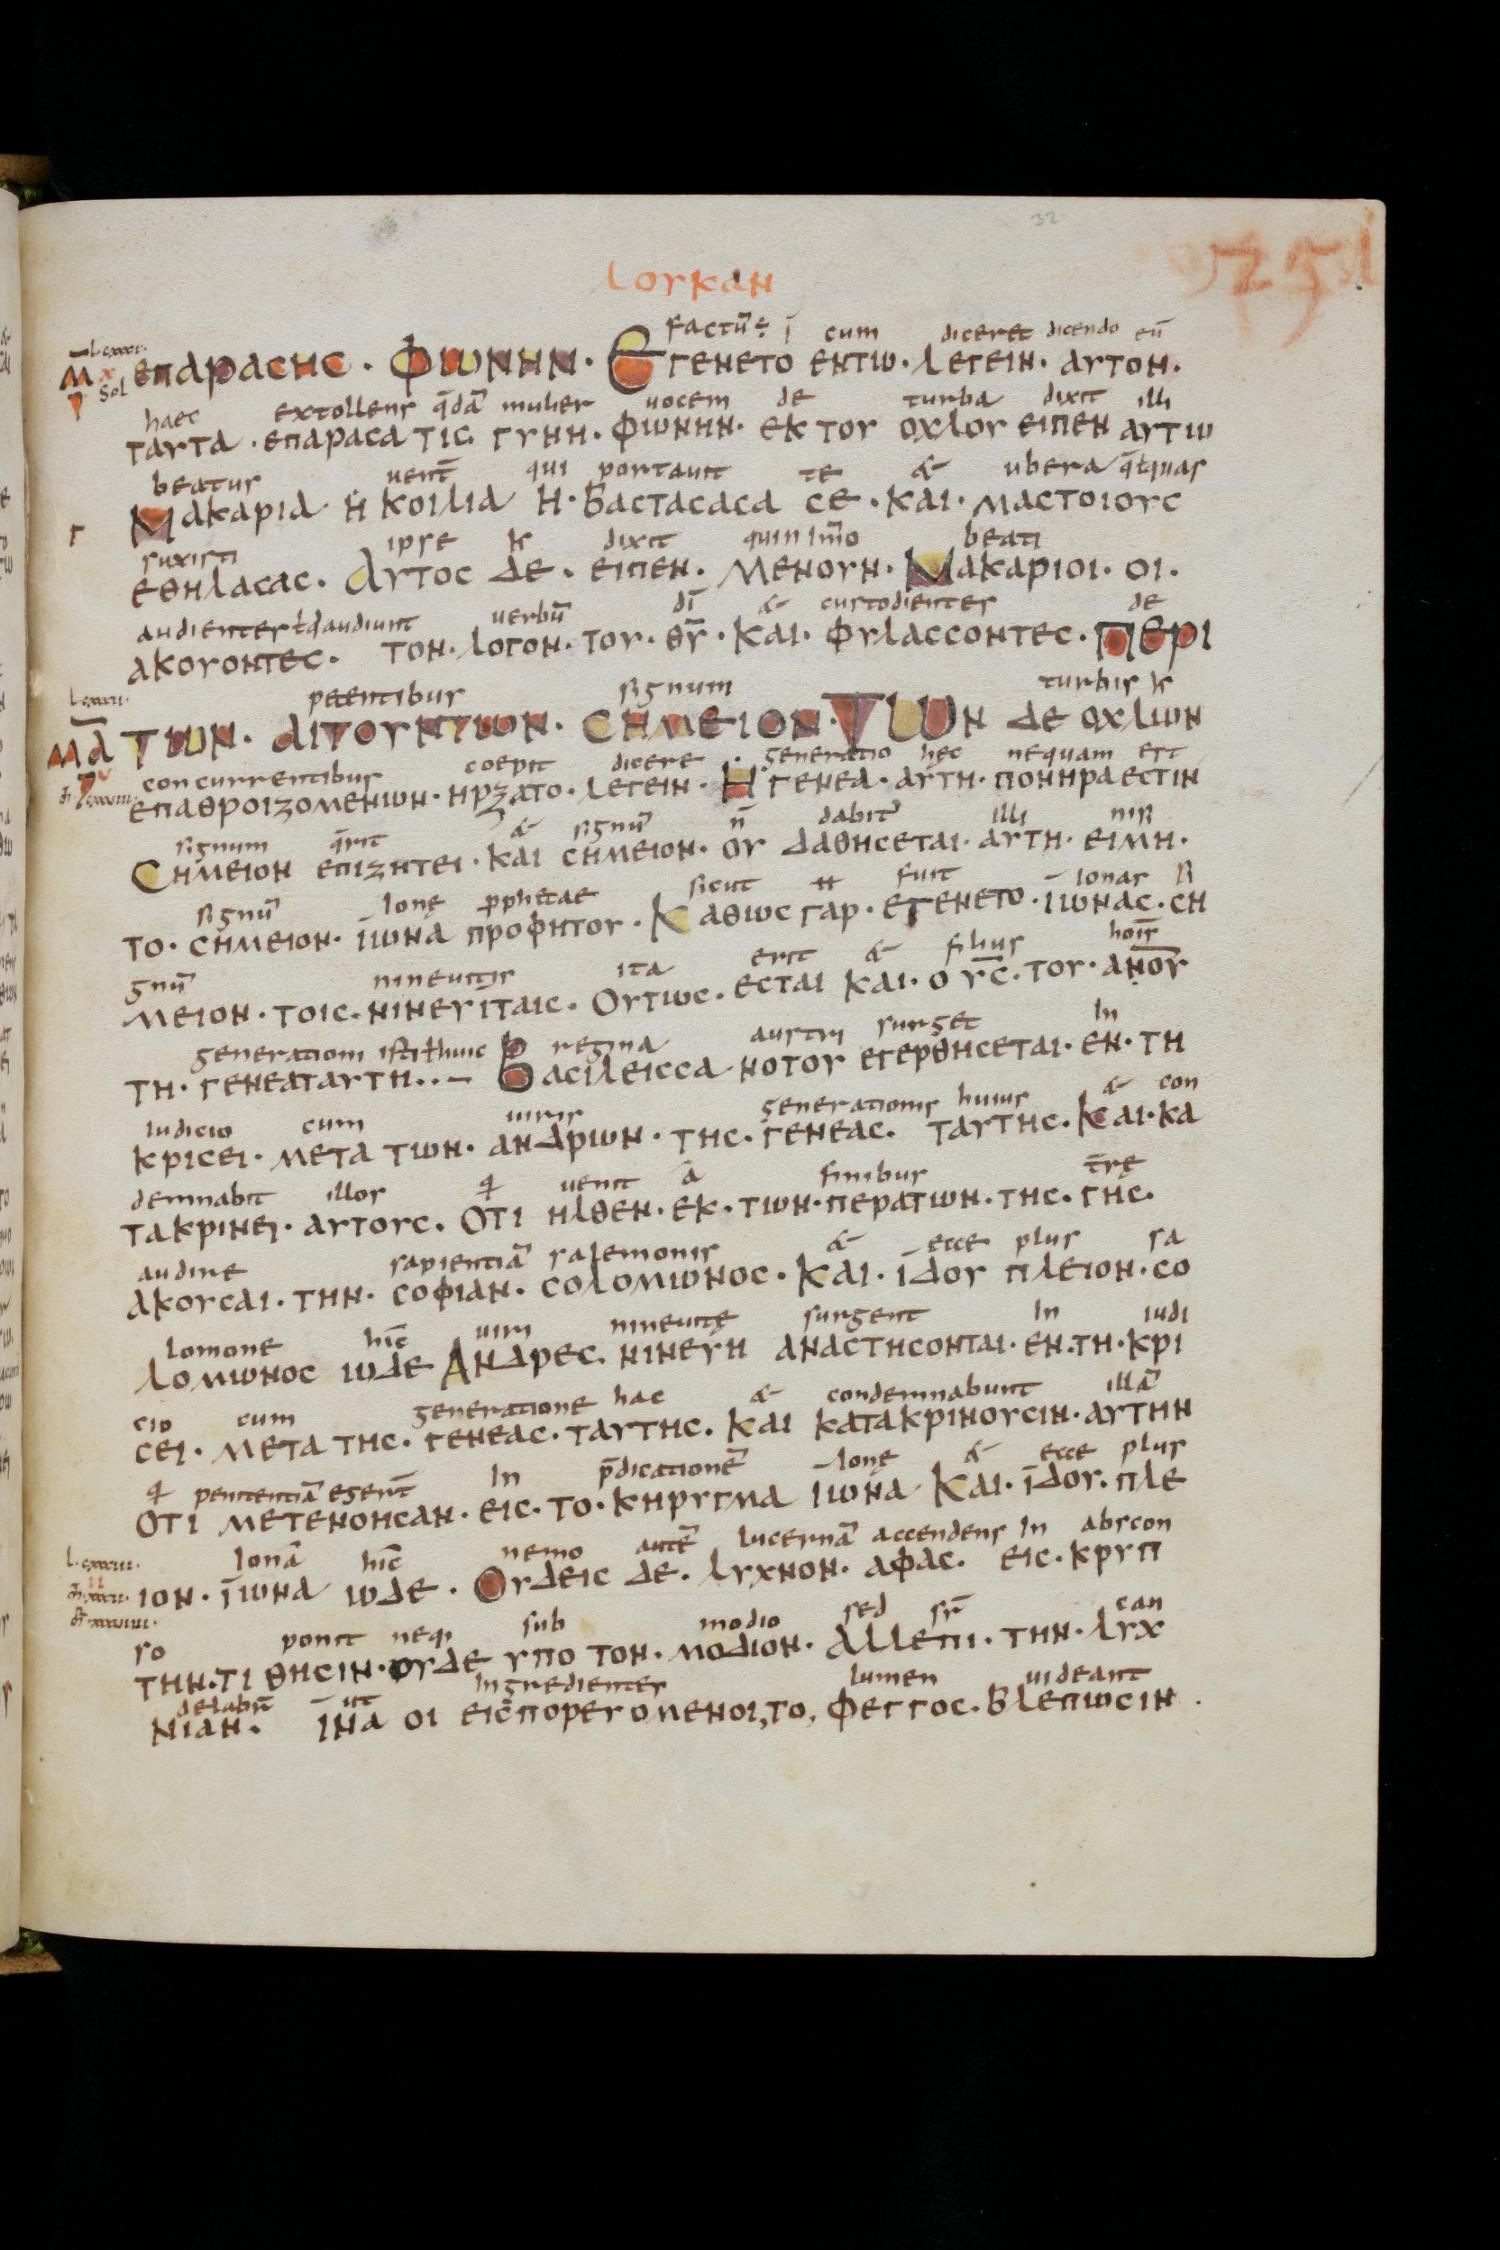 32
251
ΛΟΥΚΑΝ
factū ÷ ī cum diceret dicendo eū
ΕΠΑΡΑCΗC · ΦΩΝΗΝ · ΕΓΕΝΕΤΟ ΕΝΤΩ · ΛΕΓΕΙΝ · ΑΥΤΟΝ ·
Sol
haec extollens q̄dā mulier uocem de turba dixit illi
ΤΑΥΤΑ · ΕΠΑΡΑCΑ ΤΙC ΓΥΝΗ · ΦΩΝΗΝ · ΕΚ ΤΟΥ ΟΧΛΟΥ ΕΙΠΕΝ ΑΥΤΩ
beatus uent̄ qui portauit te & ubera q̄ł quas
Γ ΜΑΚΑΡΙΑ Η ΚΟΙΛΙΑ Η · ΒΑCΤΑCΑCΑ CΕ · ΚΑΙ · ΜΑCΤΟΙΟΥC
suxisti ipse dixit quin immo beati
ΕΘΗΛΑCΑC · ΑΥΤΟC ΔΕ · ΕΙΠΕΝ · ΜΕΝΟΥΝ · ΜΑΚΑΡΙΟΙ · ΟΙ ·
audientes ł q̄ audiunt uerbū dī & custodientes de
ΑΚΟΥΟΝΤΕC · ΤΟΝ · ΛΟΓΟΝ · ΤΟΥ · ΘῩ · ΚΑΙ · ΦΥΛΑCCΟΝΤΕC · ΠΕΡΙ
petentibus signum turbis
ΜΑ ΤΩΝ · ΑΙΤΟΥΝΤΩΝ · CΗΜΕΙΟΝ · ΤΩΝ ΔΕ ΟΧΛΩΝ
concurrentibus coepit dicere generatio hęc nequam est
ΕΠΑΘΡΟΙΖΟΜΕΝΩΝ · ΗΡΞΑΤΟ · ΛΕΓΕΙΝ · Η ΓΕΝΕΑ · ΑΥΤΗ · ΠΟΝΗΡΑ ΕCΤΙΝ
signum q̄rit & signū n̄ dabit illi nisi
CΗΜΕΙΟΝ ΕΠΙΖΗΤΕΙ · ΚΑΙ CΗΜΕΙΟΝ · ΟΥ ΔΑΘΗCΕΤΑΙ · ΑΥΤΗ · ΕΙΜΗ ·
signū ionę p̄phetae sicut fuit ionas si
ΤΟ · CΗΜΕΙΟΝ · ΙΩΝΑ ΠΡΟΦΗΤΟΥ · ΚΑΘΩC ΓΑΡ · ΕΓΕΝΕΤΟ · ΙΩΝΑC · CΗ
gnū nineuitis ita erit & filius hois̄
ΜΕΙΟΝ · ΤΟΙC · ΝΙΝΕΥΙΤΑΙC · ΟΥΤΩC · ΕCΤΑΙ ΚΑΙ · Ο ΥC̄ · ΤΟΥ · ΑΝΟῩ
generationi isti ł huic regina austri surget in
ΤΗ · ΓΕΝΕΑΤΑΥΤΗ · · – ΒΑCΙΛΕΙCCΑ ΝΟΤΟΥ ΕΓΕΡΘΗCΕΤΑΙ · ΕΝ · ΤΗ
iudicio cum uiris generationis huius & con
ΚΡΙCΕΙ · ΜΕΤΑ ΤΩΝ · ΑΝΔΡΩΝ · ΤΗC · ΓΕΝΕΑC · ΤΑΥΤΗC · ΚΑΙ · ΚΑ
demnabit illos uenit a finibus t̄rę
ΤΑΚΡΙΝΕΙ · ΑΥΤΟΥC · ΟΤΙ ΗΛΘΕΝ · ΕΚ · ΤΩΝ · ΠΕΡΑΤΩΝ · ΤΗC · ΓΗC ·
audire sapientiā salemonis & ecce plus sa
ΑΚΟΥCΑΙ · ΤΗΝ · CΟΦΙΑΝ · CΟΛΟΜΩΝΟC · ΚΑΙ · ΙΔΟΥ ΠΛΕΙΟΝ · CΟ
lomone hic̄ uiri nineuitę surgent in iudi
ΛΟΜΩΝΟC ΩΔΕ ΑΝΔΡΕC · ΝΙΝΕΥΗ ΑΝΑCΤΗCΟΝΤΑΙ · ΕΝ · ΤΗ · ΚΡΙ
cio cum generatione hac & condemnabunt illā
CΕΙ · ΜΕΤΑ ΤΗC · ΓΕΝΕΑC · ΤΑΥΤΗC · ΚΑΙ ΚΑΤΑΚΡΙΝΟΥCΙΝ · ΑΥΤΗΝ
penitentiā egert̄ in p̄dicationē ionę & ecce plus
ΟΤΙ ΜΕΤΕΝΟΗCΑΝ · ΕΙC · ΤΟ · ΚΗΡΥΓΜΑ ΙΩΝΑ ΚΑΙ · ΙΔΟΥ · ΠΛΕ
ionā hic̄ nemo autē lucernā accendens in abscon
ΙΟΝ · ΙΩΝΑ ΩΔΕ · ΟΥΔΕΙC ΔΕ · ΛΥΧΝΟΝ · ΑΦΑC · ΕΙC · ΚΡΥΠ
so ponit neq; sub modio sed sr̄ can
ΤΗΝ · ΤΙΘΗCΙΝ · ΟΥΔΕ ΥΠΟ ΤΟΝ · ΜΟΔΙΟΝ · ΑΛΛΕΠΙ · ΤΗΝ · ΛΥΧ
delabrū ut ingredientes lumen uideant
ΝΙΑΝ · ΙΝΑ ΟΙ ΕΙCΠΟΡΕΥΟΜΕΝΟΙ, ΤΟ, ΦΕΓΓΟC · ΒΛΕΠΩCΙΝ ·